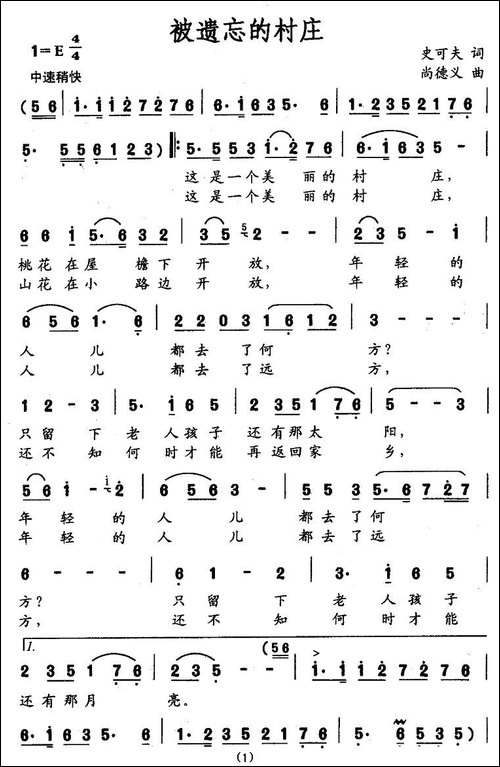 被遗忘的村庄
1=E 4/4
中速稍快
史可夫 词
尚德义 曲
(5 6 | 1· 1 1 2 7 2 7 6 | 6· 1 6 3 5· 6 | 1· 2 3 5 2 1 7 6 |
5· 5 5 6 1 2 3 ) ‖: 5· 5 5 3 1· 2 7 | 6· 1 6 3 5 - |
这是一个美 丽的村 庄,
这是一个美 丽的村 庄,
6 6 1 5· 6 3 2 | 3 5 5 2 - - | 2 3 5 - 1 |
桃花在屋 檐下开 放, 年轻的
山花在小 路边开 放, 年轻的
6 5 6 1· 6 | 2 2 0 3 1 6 1 2 | 3 - - - |
人 儿 都去了何 方?
人 儿 都去了远 方,
1 2 - 3 | 5· 1 6 5 | 2 3 5 1 7 6 | 5 - - 3 |
只留 下 老人孩子 还有那太 阳,
还不 知 何时才能 再返回家 乡,
5 6 1 - 1 2 | 6 5 6 3 - | 5 5 3 5· 6 7 2 7 |
年轻的 人 儿 都去了何
年轻的 人 儿 都去了远
6 - - - | 6 1 - 2 | 3· 1 6 5 |
方? 只留 下 老人孩子
方, 还不 知 何时才能
1. (5 6
2 3 5 1 7 6 | 2 3 5 - - | 1· 1 1 2 7 2 7 6 |
还有那月 亮。
6· 1 6 3 5· 6 | 1· 2 3 5 2 1 7 6 | 5· 6 5 3 5 ) |
(1)